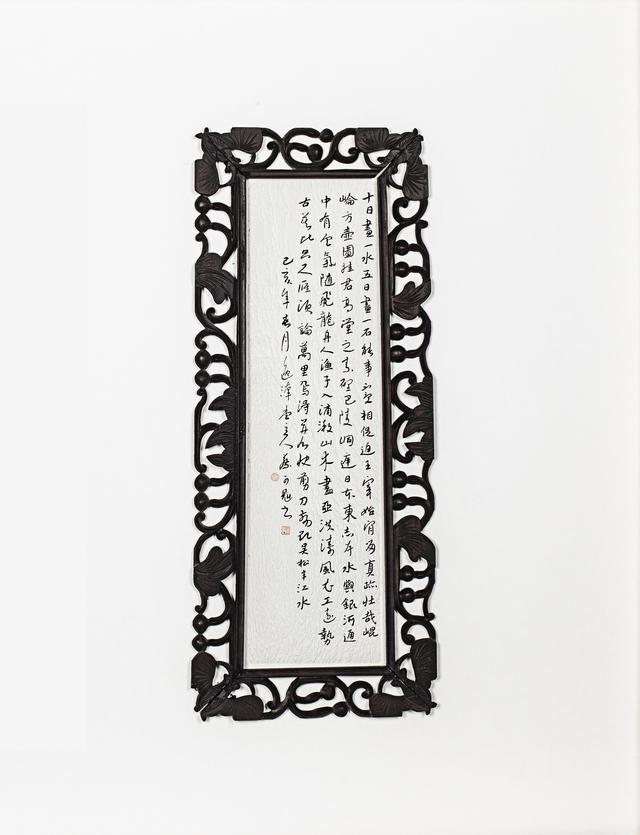 十日畫一水五日畫一石能事不受相促迫王宰始肯留真跡壯哉崐
崘方壺圖挂君高堂之素壁巴陵洞庭日本東赤岸水與銀河通
中有雲氣隨飛龍舟人漁子入浦漵山木盡亞洪濤風尤工遠勢
古莫比咫尺應須論萬里焉得并州快剪刀剪取吳松半江水
己亥年春月主人